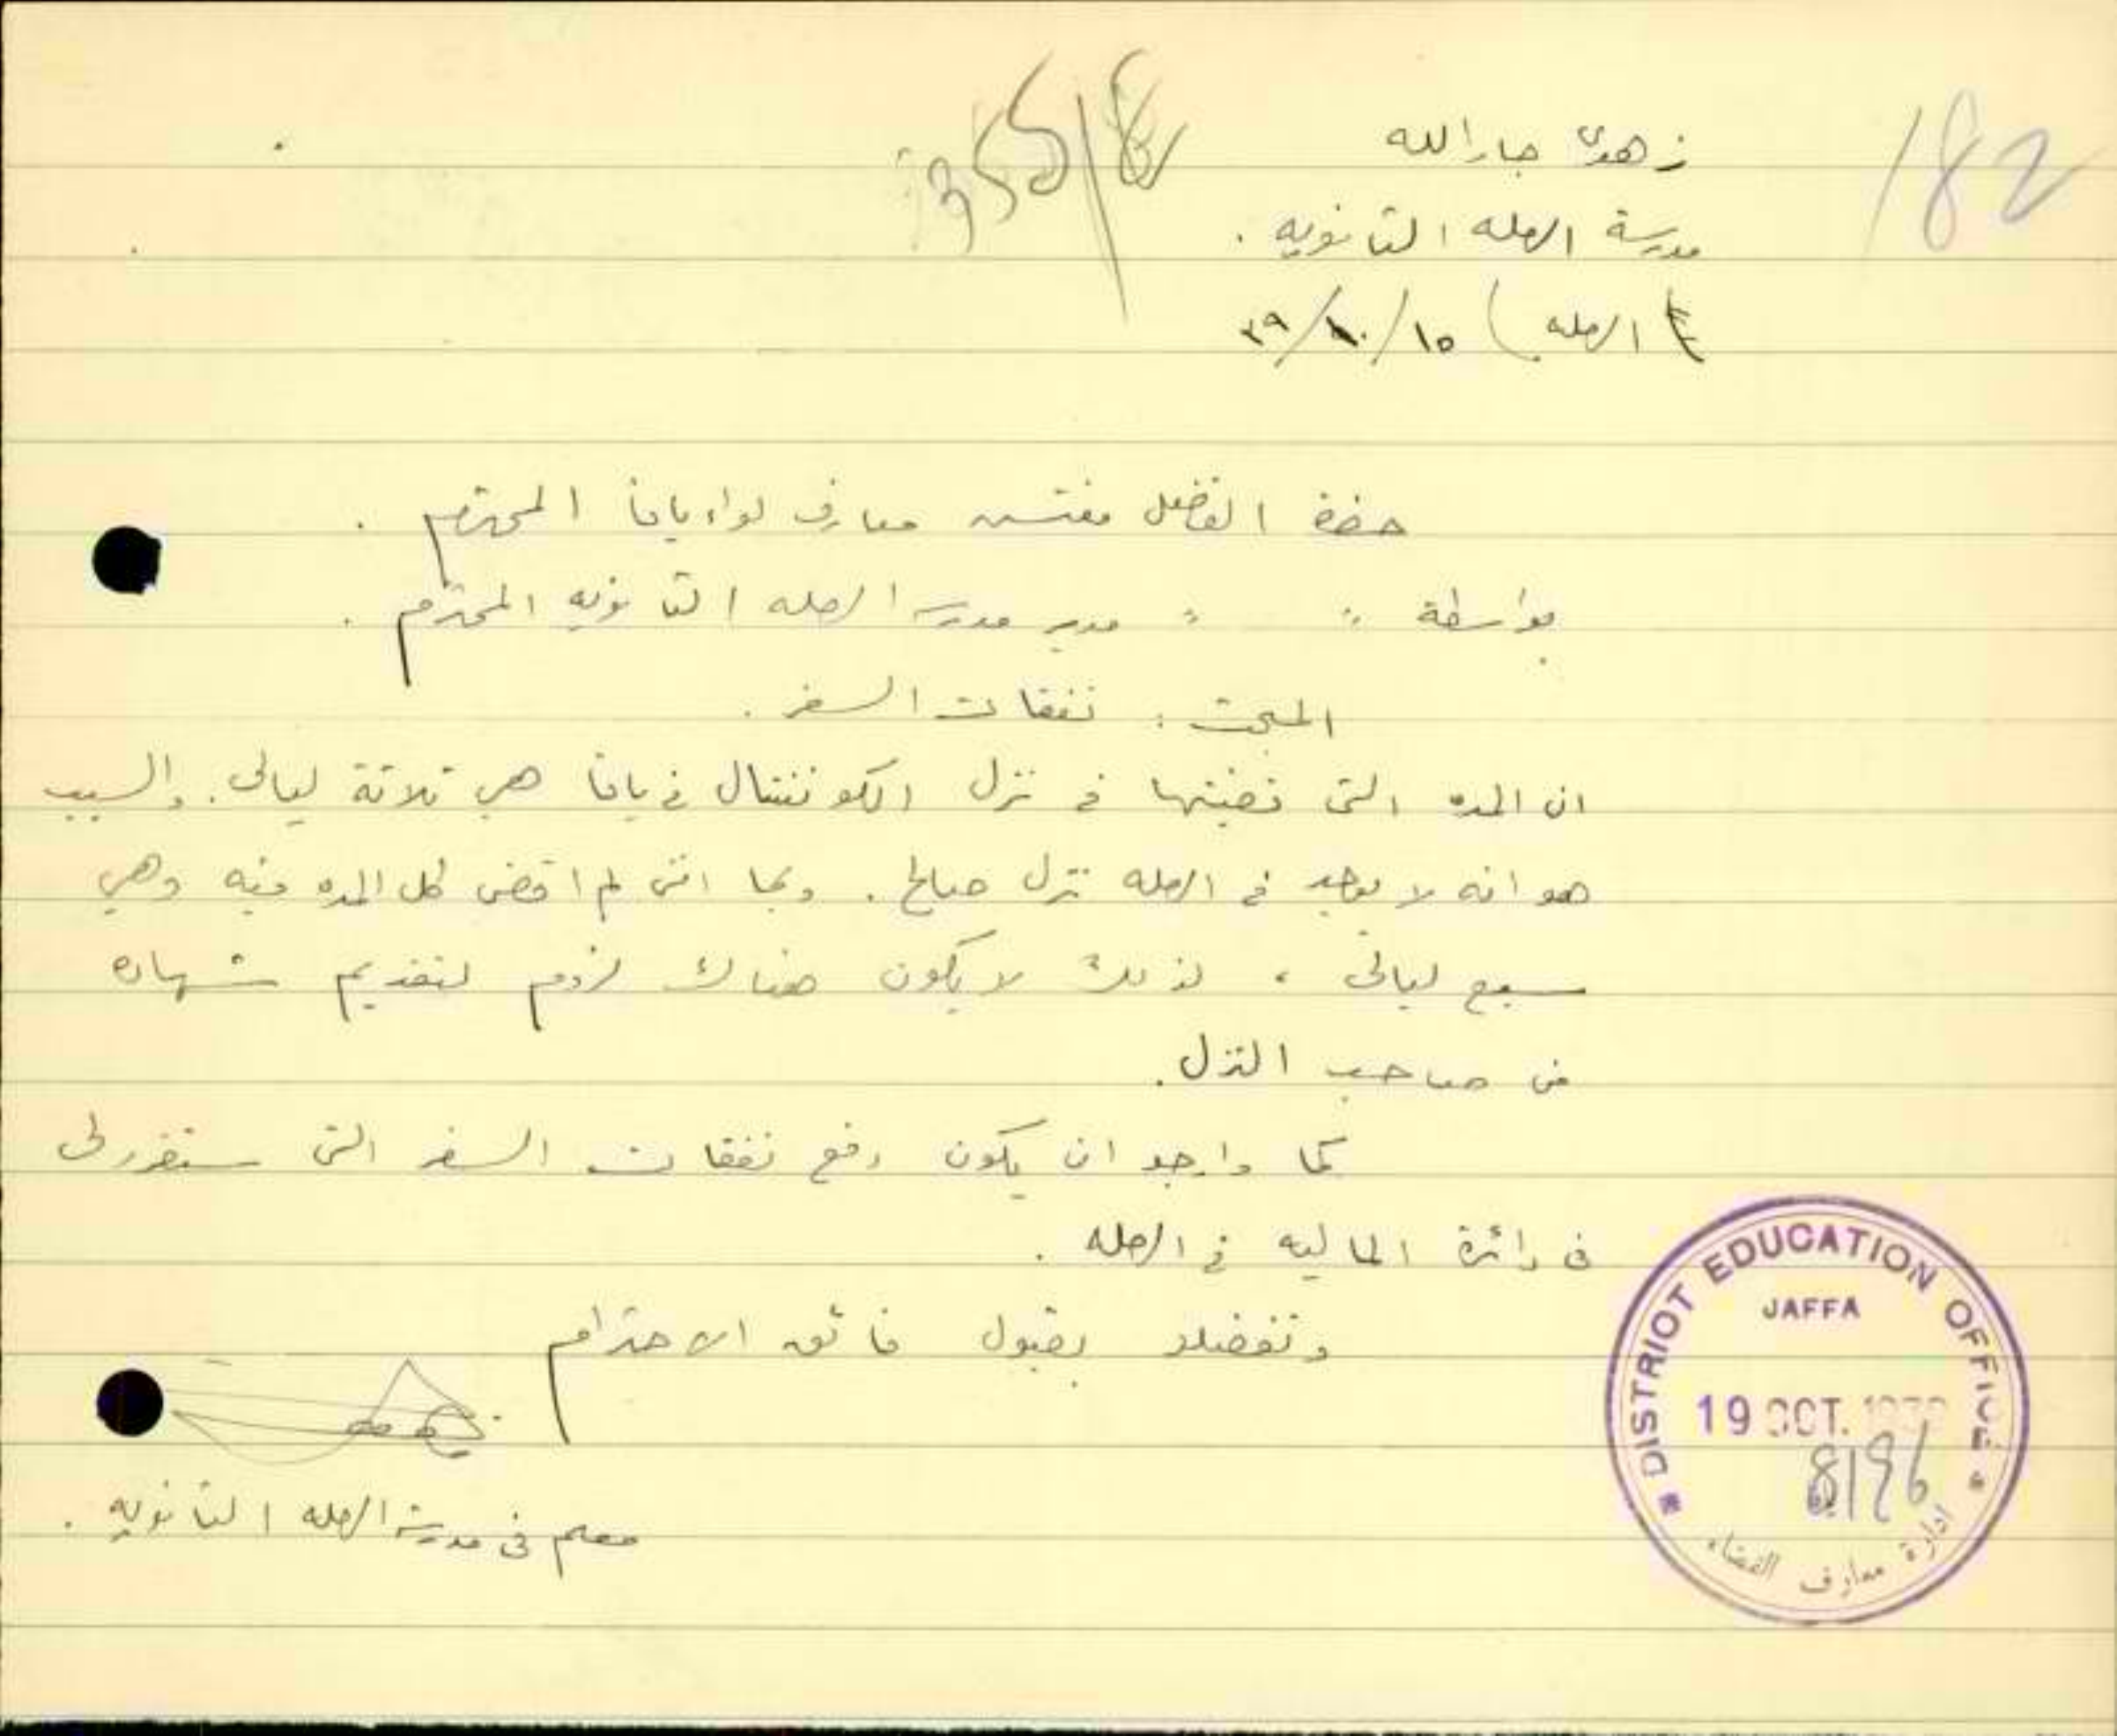 182
355/8
زهدي جارالله
مدرسة الرمله الثانويه .
الرمله) ١٥/١٠/٣٩
حضرة الفاضل مفتش معارف لواء يافا المحترم .
بواسطة : : مدير مدرسة الرمله الثانويه المحترم .
المبحث : نفقات السفر .
ان المده التي قضيتها في نزل الكونتننتال في يافا هي ثلاثة ليالي . والسبب
هو انه لا يوجد في الرمله نزل صالح . وبما انني لم اقض كل المده فيه وهي
سبع ليالي ، لذلك لا يكون هناك لزوم لتقديم شهاده
من صاحب النزل .
كما وارجو ان يكون دفع نفقات السفر التي ستقرر لي
في دائرة الماليه في الرمله .
وتفضلو بقبول فائق الاحترام
معلم في مدرسة الرمله الثانويه .
DISTRICT EDUCATION OFFICE
JAFFA
19 OCT.
8196
ادارة معارف القضاء